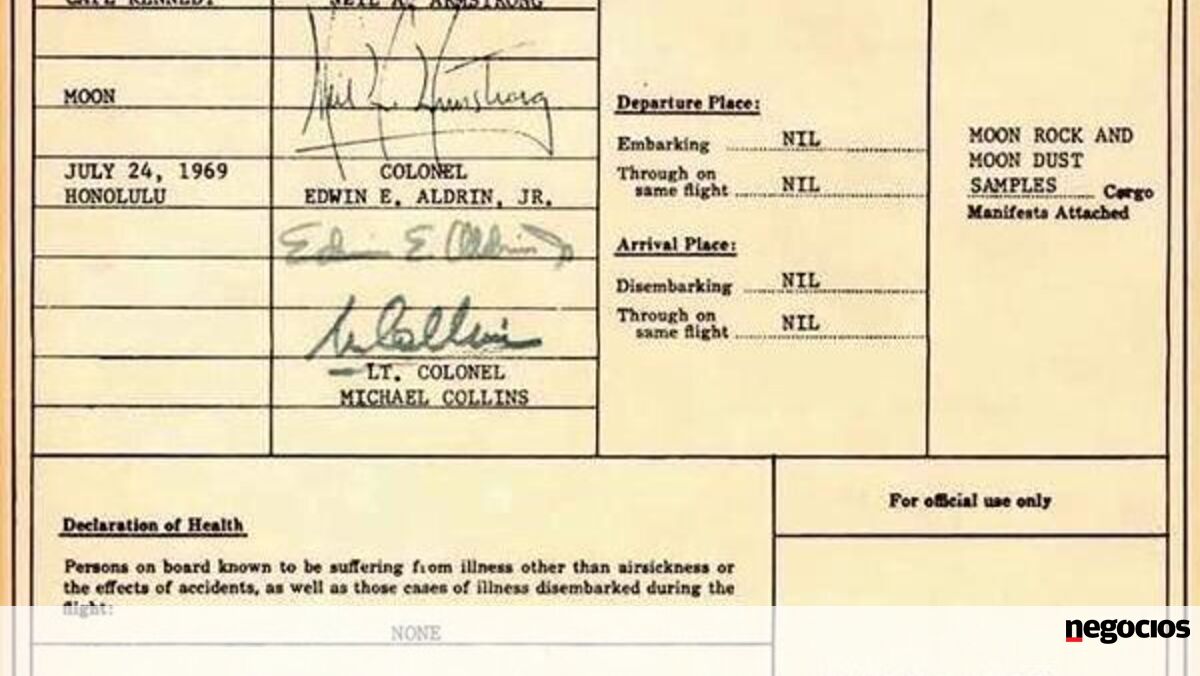 CAPE KENNEDY
NEIL A. ARMSTRONG
Neil A. Armstrong
MOON
JULY 24, 1969
HONOLULU
COLONEL
EDWIN E. ALDRIN, JR.
Edwin E. Aldrin Jr
M Collins
LT. COLONEL
MICHAEL COLLINS
Departure Place:
Embarking NIL
Through on
same flight NIL
Arrival Place:
Disembarking NIL
Through on
same flight NIL
MOON ROCK AND
MOON DUST
SAMPLES Cargo
Manifests Attached
Declaration of Health
Persons on board known to be suffering from illness other than airsickness or
the effects of accidents, as well as those cases of illness disembarked during the
flight:
NONE
For official use only
negocios